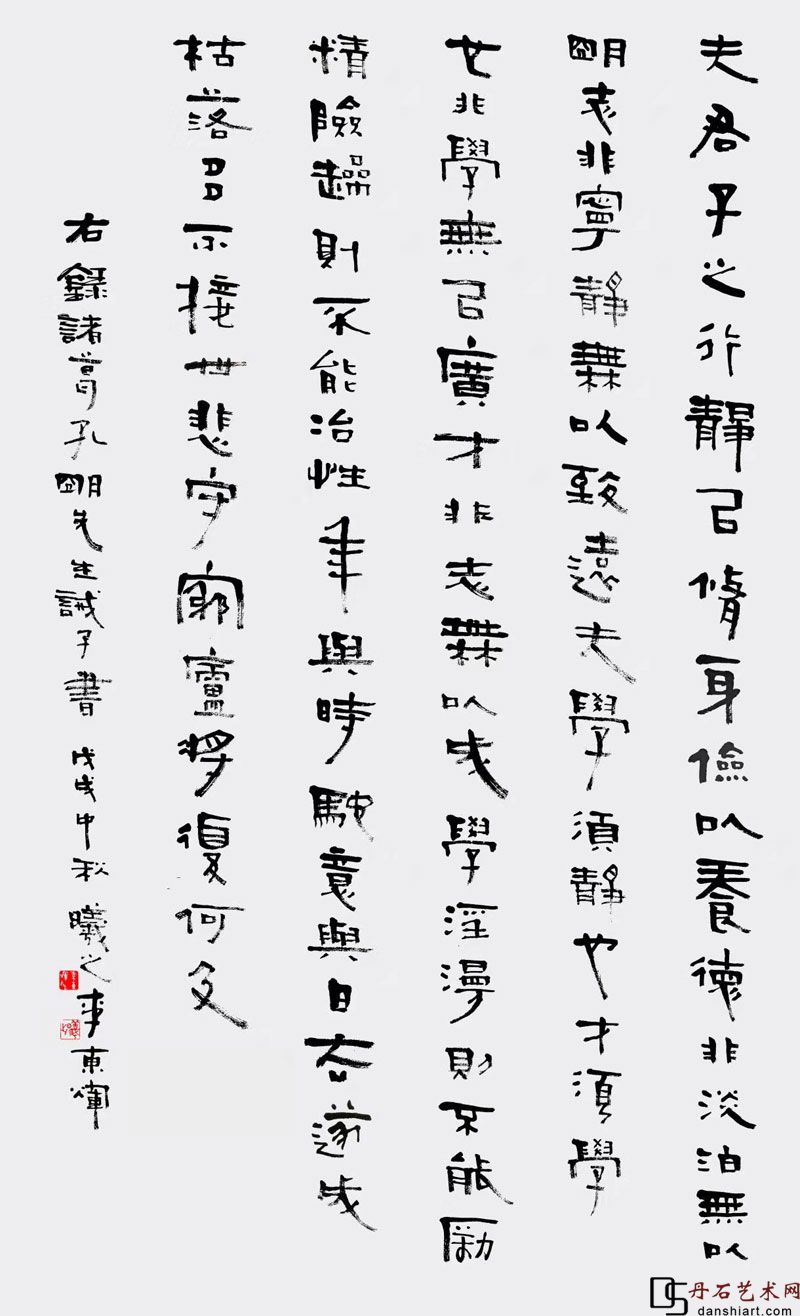 夫君子之行靜以脩身儉以養德非淡泊無以
明志非寧靜無以致遠夫學須靜也才須學
也非學無以廣才非志無以成學淫漫則不能勵
精險躁則不能治性年與時馳意與日去遂成
枯落多不接世悲守窮廬將復何及
右錄諸葛孔明先生誡子書 戊戌中秋 曦之李東煇
DS 丹石艺术网
danshiart.com